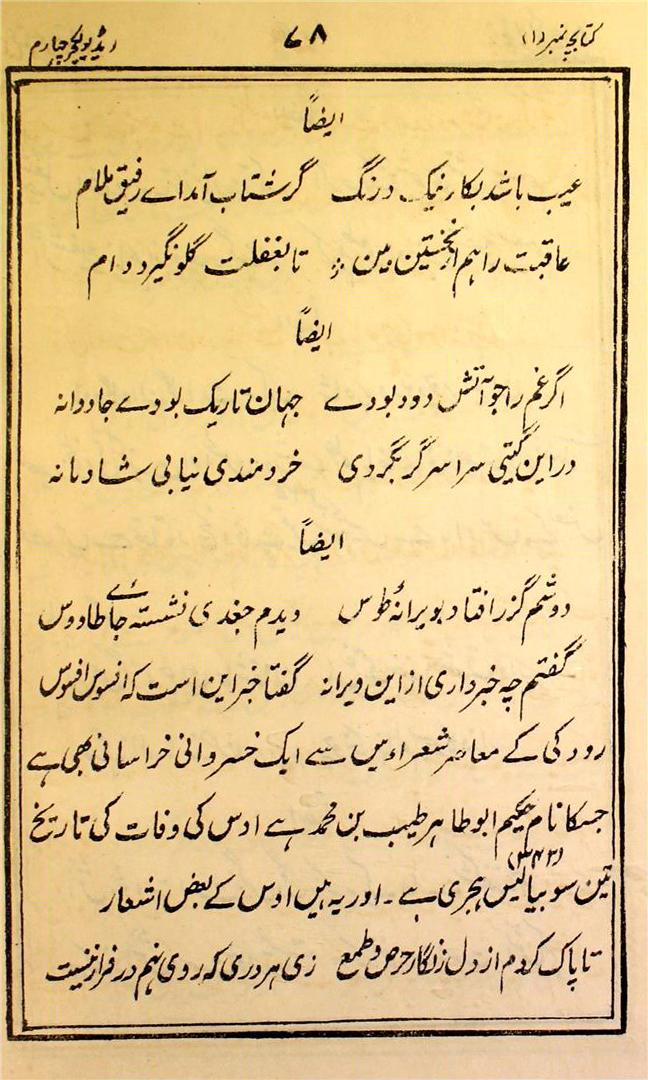 کتابچہ نمبر (۱) ۶۸ ریڈیو لکچر چہارم
ایضاً
عیب باشد بکار نیک درنگ گر شتاب آمد اے رفیق ملام
عاقبت را ہم از نخستین بین تا بغفلت گلو نگیرد دام
ایضاً
اگر غم را چو آتش دود بودے جہان تاریک بودے جاودانہ
در این گیتی سراسر گر بگردی خردمندی نیابی شادمانہ
ایضاً
دوشم گزر افتاد بویرانۂ طوس دیدم جغدی نشستہ جائے طاووس
گفتم چہ خبر داری از این ویرانہ گفتا خبر این است کہ افسوس افسوس
رودکی کے معاصر شعراء میں سے ایک خسروانی خراسانی بھی ہے
جسکا نام حکیم ابو طاہر طیب بن محمد ہے اوس کی وفات کی تاریخ
(۳۴۲)
تین سو بیالیس ہجری ہے ۔ اور یہ ہیں اوس کے بعض اشعار
تا پاک کردم از دل زنگار حرص و طمع زی ہر دری کہ روی نہم در فراز نیست